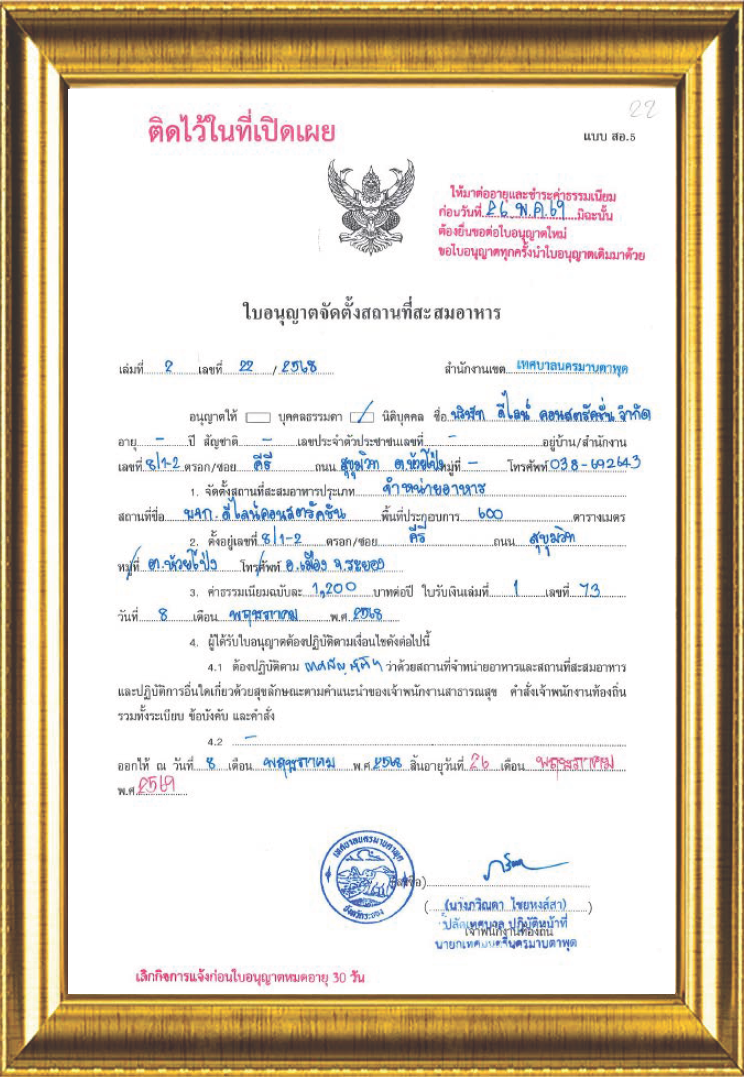 22
ติดไว้ในที่เปิดเผย
แบบ สอ.5
ให้มาต่ออายุและชำระค่าธรรมเนียม
ก่อนวันที่ 26 พ.ค.69 มิฉะนั้น
ต้องยื่นขอต่อใบอนุญาตใหม่
ขอใบอนุญาตทุกครั้งนำใบอนุญาตเดิมมาด้วย
ใบอนุญาตจัดตั้งสถานที่สะสมอาหาร
เล่มที่ 2 เลขที่ 22 / 2568 สำนักงานเขต เทศบาลนครมาบตาพุด
อนุญาตให้ บุคคลธรรมดา นิติบุคคล ชื่อ บริษัท ดีไลน์ คอนสตรัคชั่น จำกัด
อายุ - ปี สัญชาติ - เลขประจำตัวประชาชนเลขที่ - อยู่บ้าน/สำนักงาน
เลขที่ 8/1-2 ตรอก/ซอย คีรี ถนน สุขุมวิท ต.ห้วยโป่ง หมู่ที่ - โทรศัพท์ 038-692643
1. จัดตั้งสถานที่สะสมอาหารประเภท จำหน่ายอาหาร
สถานที่ชื่อ บจก.ดีไลน์คอนสตรัคชั่น พื้นที่ประกอบการ 600 ตารางเมตร
2. ตั้งอยู่เลขที่ 8/1-2 ตรอก/ซอย คีรี ถนน สุขุมวิท
หมู่ที่ ต.ห้วยโป่ง โทรศัพท์ อ.เมือง จ.ระยอง
3. ค่าธรรมเนียมฉบับละ 1,200 บาทต่อปี ใบรับเงินเล่มที่ 1 เลขที่ 73
วันที่ 8 เดือน พฤษภาคม พ.ศ. 2568
4. ผู้ได้รับใบอนุญาตต้องปฏิบัติตามเงื่อนไขดังต่อไปนี้
4.1 ต้องปฏิบัติตาม เทศบัญญัติฯ ว่าด้วยสถานที่จำหน่ายอาหารและสถานที่สะสมอาหาร
และปฏิบัติการอื่นใดเกี่ยวด้วยสุขลักษณะตามคำแนะนำของเจ้าพนักงานสาธารณสุข คำสั่งเจ้าพนักงานท้องถิ่น
รวมทั้งระเบียบ ข้อบังคับ และคำสั่ง
4.2 -
ออกให้ ณ วันที่ 8 เดือน พฤษภาคม พ.ศ. 2568 สิ้นอายุวันที่ 26 เดือน พฤษภาคม
พ.ศ. 2569
เทศบาลนครมาบตาพุด
จังหวัดระยอง
(ลงชื่อ)
(นางภวิณดา ไชยหงส์สา)
ปลัดเทศบาล ปฏิบัติหน้าที่
เจ้าพนักงานท้องถิ่น
นายกเทศมนตรีนครมาบตาพุด
เลิกกิจการแจ้งก่อนใบอนุญาตหมดอายุ 30 วัน